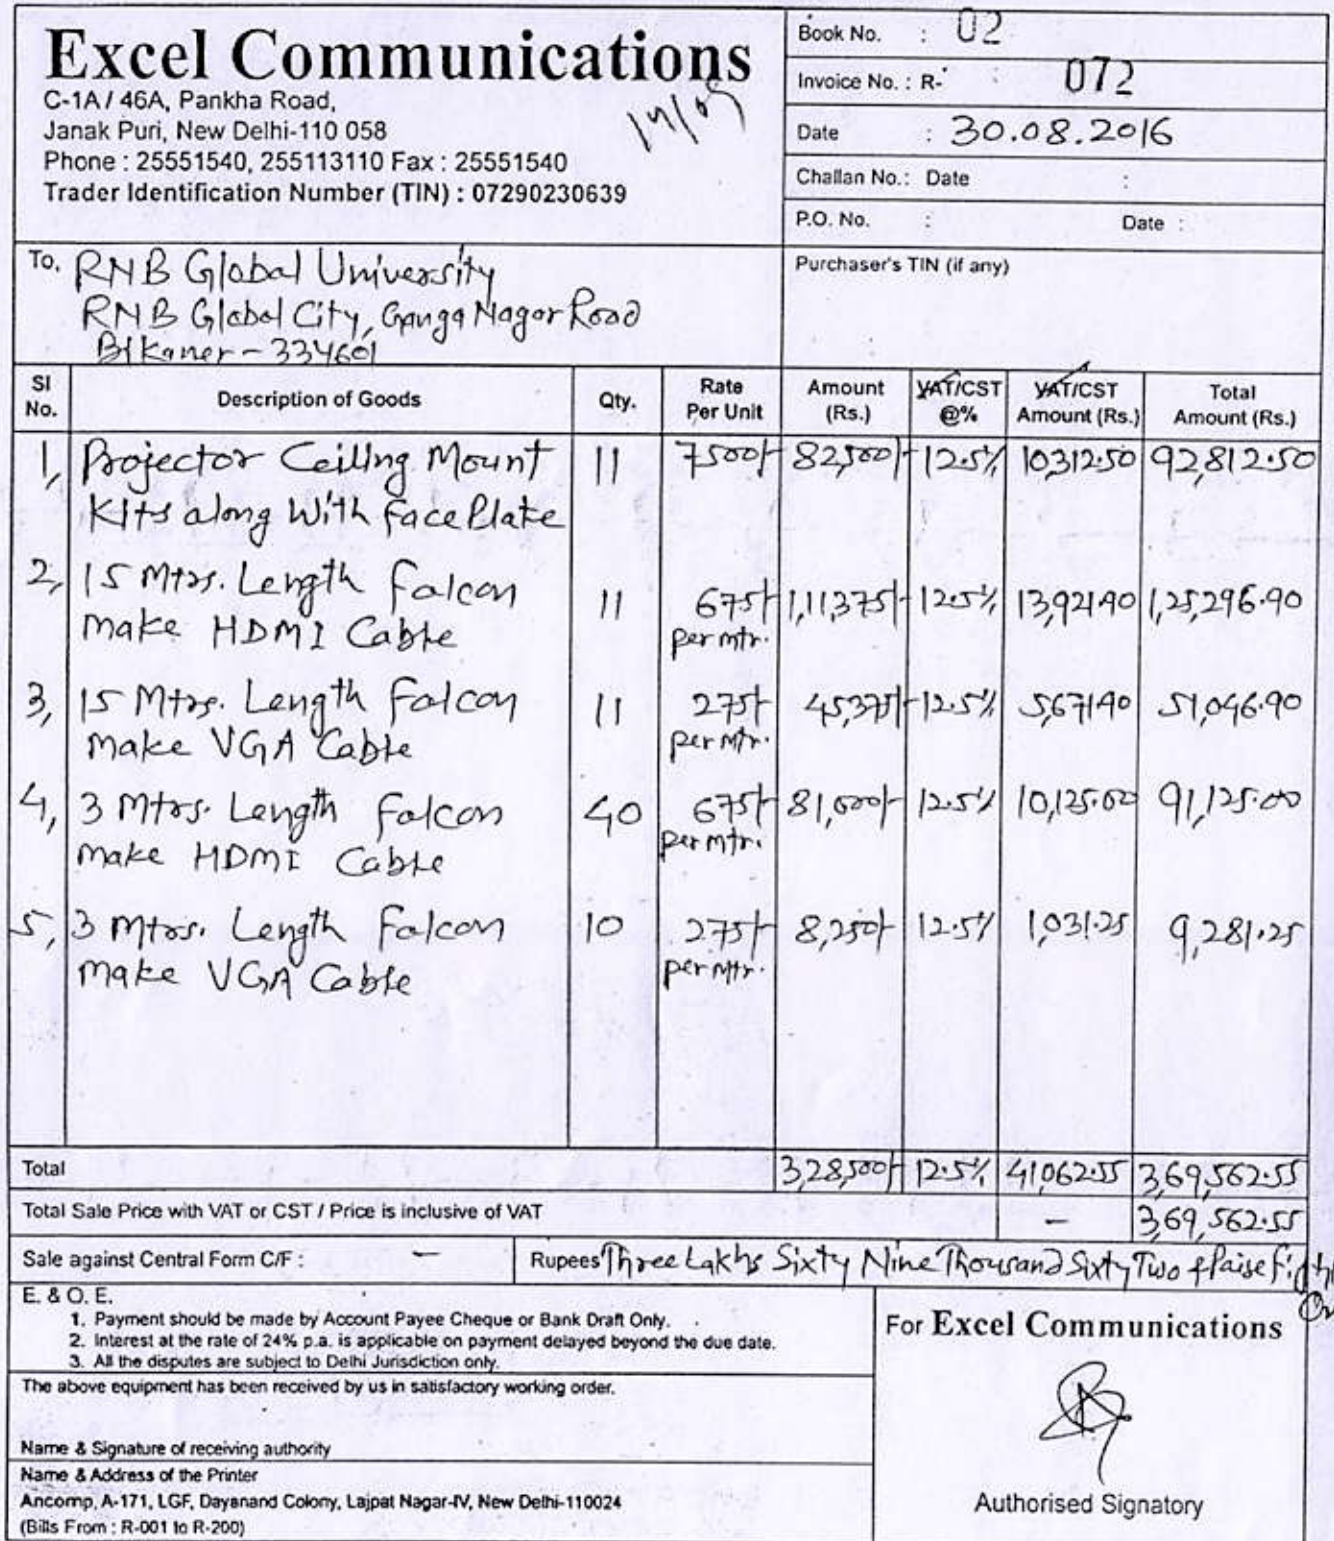 Excel Communications
C-1A / 46A, Pankha Road,
Janak Puri, New Delhi-110 058
Phone : 25551540, 255113110 Fax : 25551540
Trader Identification Number (TIN) : 07290230639
14/09
Book No. : 02
Invoice No. : R- : 072
Date : 30.08.2016
Challan No.: Date :
P.O. No. : Date :
To, RNB Global University
RNB Global City, Ganga Nagar Road
Bikaner - 334601
Purchaser's TIN (if any)
SI No. Description of Goods Qty. Rate Per Unit Amount (Rs.) VAT/CST @% VAT/CST Amount (Rs.) Total Amount (Rs.)
1, Projector Ceiling Mount 11 7500/- 82,500/- 12.5% 10,312.50 92,812.50
Kits along With face Plate
2, 15 Mtrs. Length Falcon 11 675/- 1,11,375/- 12.5% 13,921.90 1,25,296.90
make HDMI Cable per mtr.
3, 15 Mtrs. Length Falcon 11 275/- 45,375/- 12.5% 5,671.90 51,046.90
make VGA Cable per mtr.
4, 3 Mtrs. Length Falcon 40 675/- 81,000/- 12.5% 10,125.00 91,125.00
make HDMI Cable per mtr.
5, 3 Mtrs. Length Falcon 10 275/- 8,250/- 12.5% 1,031.25 9,281.25
make VGA Cable per mtr.
Total 3,28,500/- 12.5% 41,062.55 3,69,562.55
Total Sale Price with VAT or CST / Price is inclusive of VAT - 3,69,562.55
Sale against Central Form C/F : - Rupees Three Lakhs Sixty Nine Thousand Sixty Two & Paise
E. & O. E.
1. Payment should be made by Account Payee Cheque or Bank Draft Only.
2. Interest at the rate of 24% p.a. is applicable on payment delayed beyond the due date.
3. All the disputes are subject to Delhi Jurisdiction only.
The above equipment has been received by us in satisfactory working order.
Name & Signature of receiving authority
Name & Address of the Printer
Ancomp, A-171, LGF, Dayanand Colony, Lajpat Nagar-IV, New Delhi-110024
(Bills From : R-001 to R-200)
For Excel Communications
Authorised Signatory